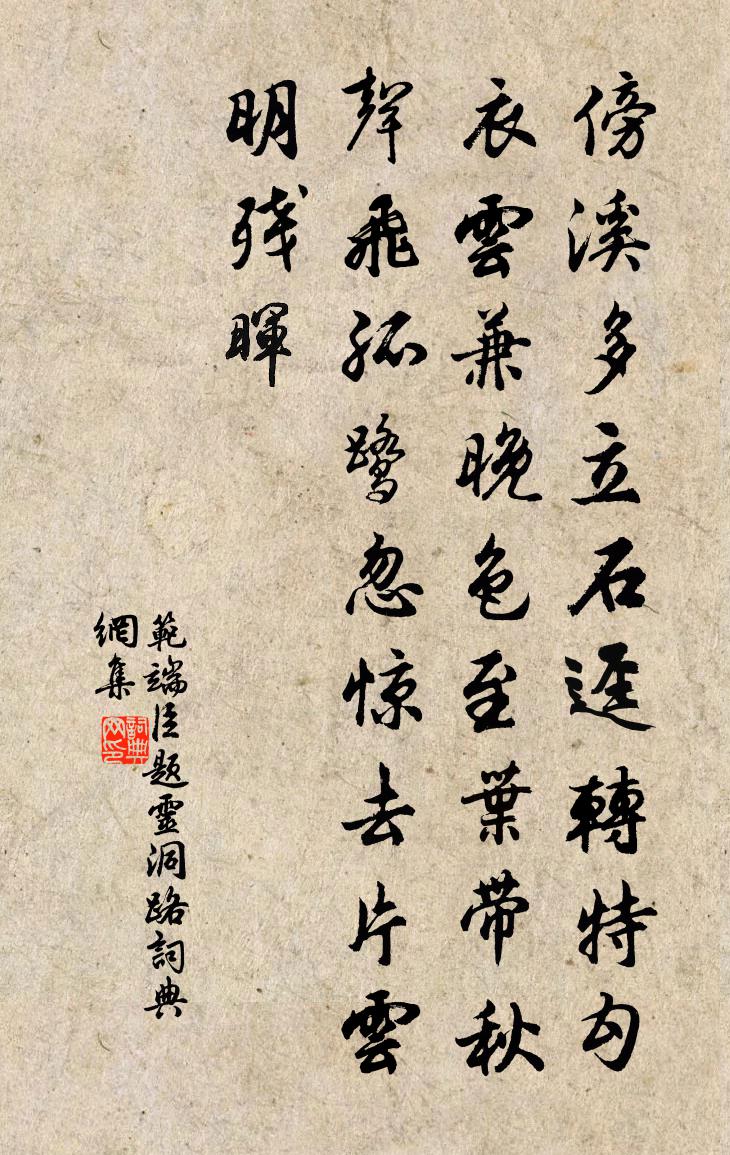 傍溪多立石逕轉特勾
衣雲兼晚色至葉帶秋
聲飛孤鷺忽惊去片雲
明残暉
範端臣題靈洞路詞典
網集
詞典网印